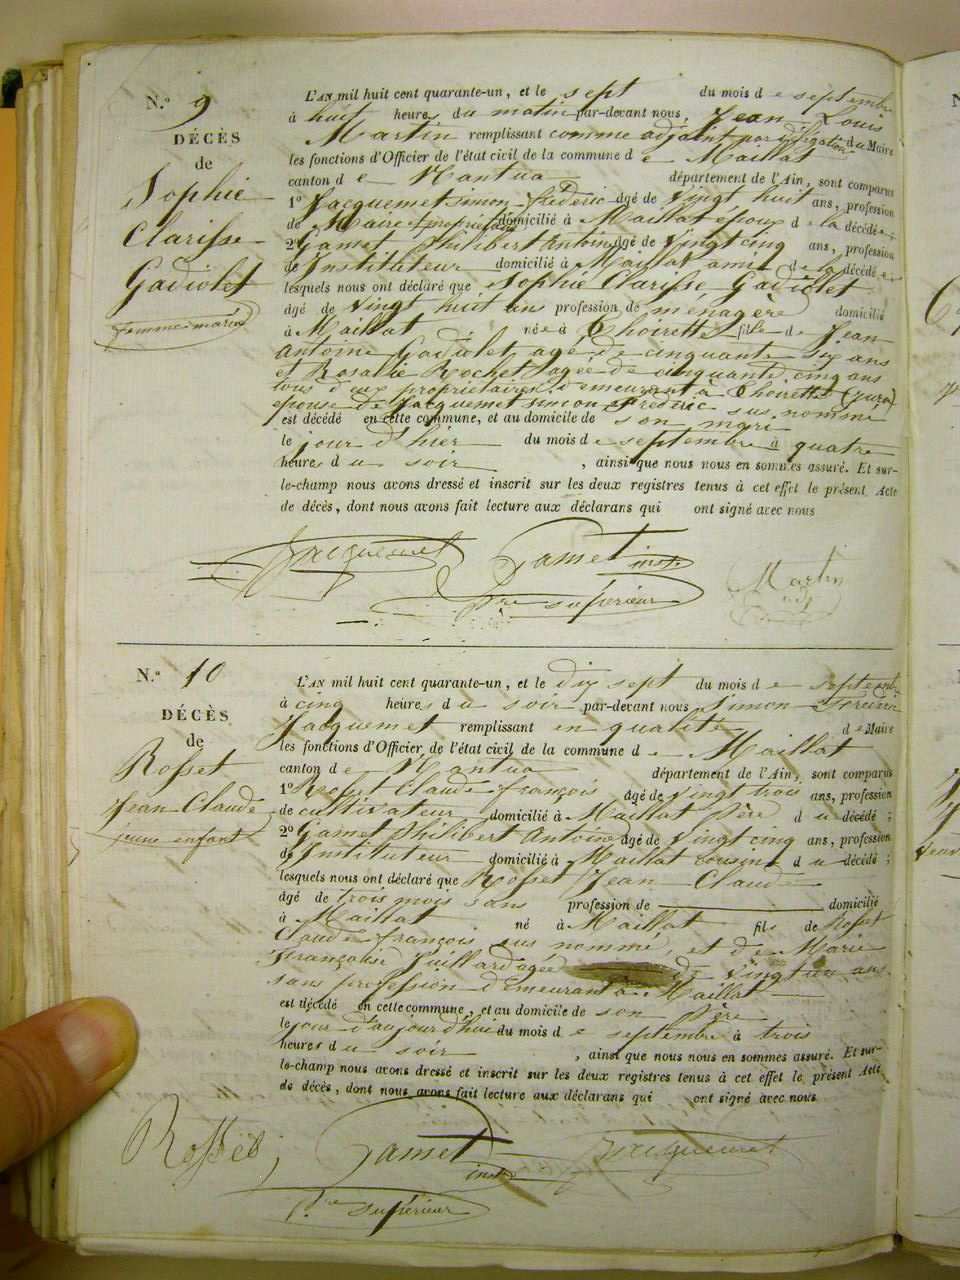 N.º 9
DÉCÈS
de
Sophie
Clarisse
Gadiolet
femme mariée
L'AN mil huit cent quarante-un, et le sept du mois d e septembre
à huit heures du matin par-devant nous, Jean Louis
Martin remplissant comme adjoint par délégation du Maire
les fonctions d'Officier de l'état civil de la commune d e Maillat
canton d e Nantua département de l'Ain, sont comparus
1º Jacquemet simon frédéric âgé de vingt huit ans, profession
de Maire & propriétaire domicilié à Maillat époux d e la décédée;
2º Gamet Philibert Antoine âgé de vingt cinq ans, profession
de Instituteur domicilié à Maillat ami d e la décédée
lesquels nous ont déclaré que Sophie Clarisse Gadiolet
âgé de vingt huit ans profession de ménagère domicilié
à Maillat née à Thoirette fille de Jean
Antoine Gadiolet agé de cinquante six ans
et Rosalie Rochet agée de cinquante cinq ans
tous deux propriétaires demeurant à Thoirette (jura)
épouse de Jacquemet simon Frédéric sus nommé
est décédé en cette commune, et au domicile de son mari
le jour d'hier du mois d e septembre à quatre
heures d u soir , ainsi que nous nous en sommes assuré. Et sur-
le-champ nous avons dressé et inscrit sur les deux registres tenus à cet effet le présent Acte
de décès, dont nous avons fait lecture aux déclarans qui ont signé avec nous
Jacquemet Gamet inst. Martin
adj
p.re supérieur
N.º 10
DÉCÈS
de
Rosset
Jean Claude
jeune enfant
L'AN mil huit cent quarante-un, et le dix sept du mois d e septembre
à cinq heures d u soir par-devant nous Simon Frédéric
Jacquemet remplissant en qualité d e Maire
les fonctions d'Officier de l'état civil de la commune d e Maillat
canton d e Nantua département de l'Ain, sont comparus
1º Rosset Claude françois âgé de vingt trois ans, profession
de cultivateur domicilié à Maillat Père d u décédé;
2º Gamet Philibert Antoine âgé de vingt cinq ans, profession
de Instituteur domicilié à Maillat cousin d u décédé;
lesquels nous ont déclaré que Rosset Jean Claude
âgé de trois mois sans profession de domicilié
à Maillat né à Maillat fils de Rosset
Claude françois sus nommé, et de Marie
Françoise Juillard agée de vingt un ans
sans profession demeurant à Maillat
est décédé en cette commune, et au domicile de son Père
le jour d'aujourd'hui du mois d e septembre à trois
heures d u soir , ainsi que nous nous en sommes assuré. Et sur-
le-champ nous avons dressé et inscrit sur les deux registres tenus à cet effet le présent Acte
de décès, dont nous avons fait lecture aux déclarans qui ont signé avec nous
Rosset; Gamet inst. Jacquemet
p.re supérieur